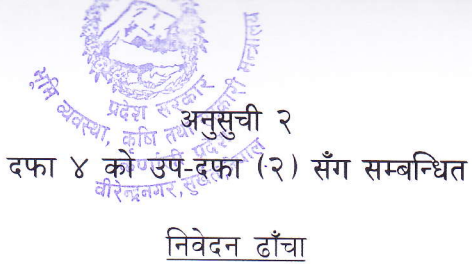 प्रदेश सरकार
भूमि व्यवस्था, कृषि तथा सहकारी मन्त्रालय
कर्णाली प्रदेश
वीरेन्द्रनगर, सुर्खेत, नेपाल
अनुसुची २
दफा ४ को उप-दफा (२) सँग सम्बन्धित
निवेदन ढाँचा